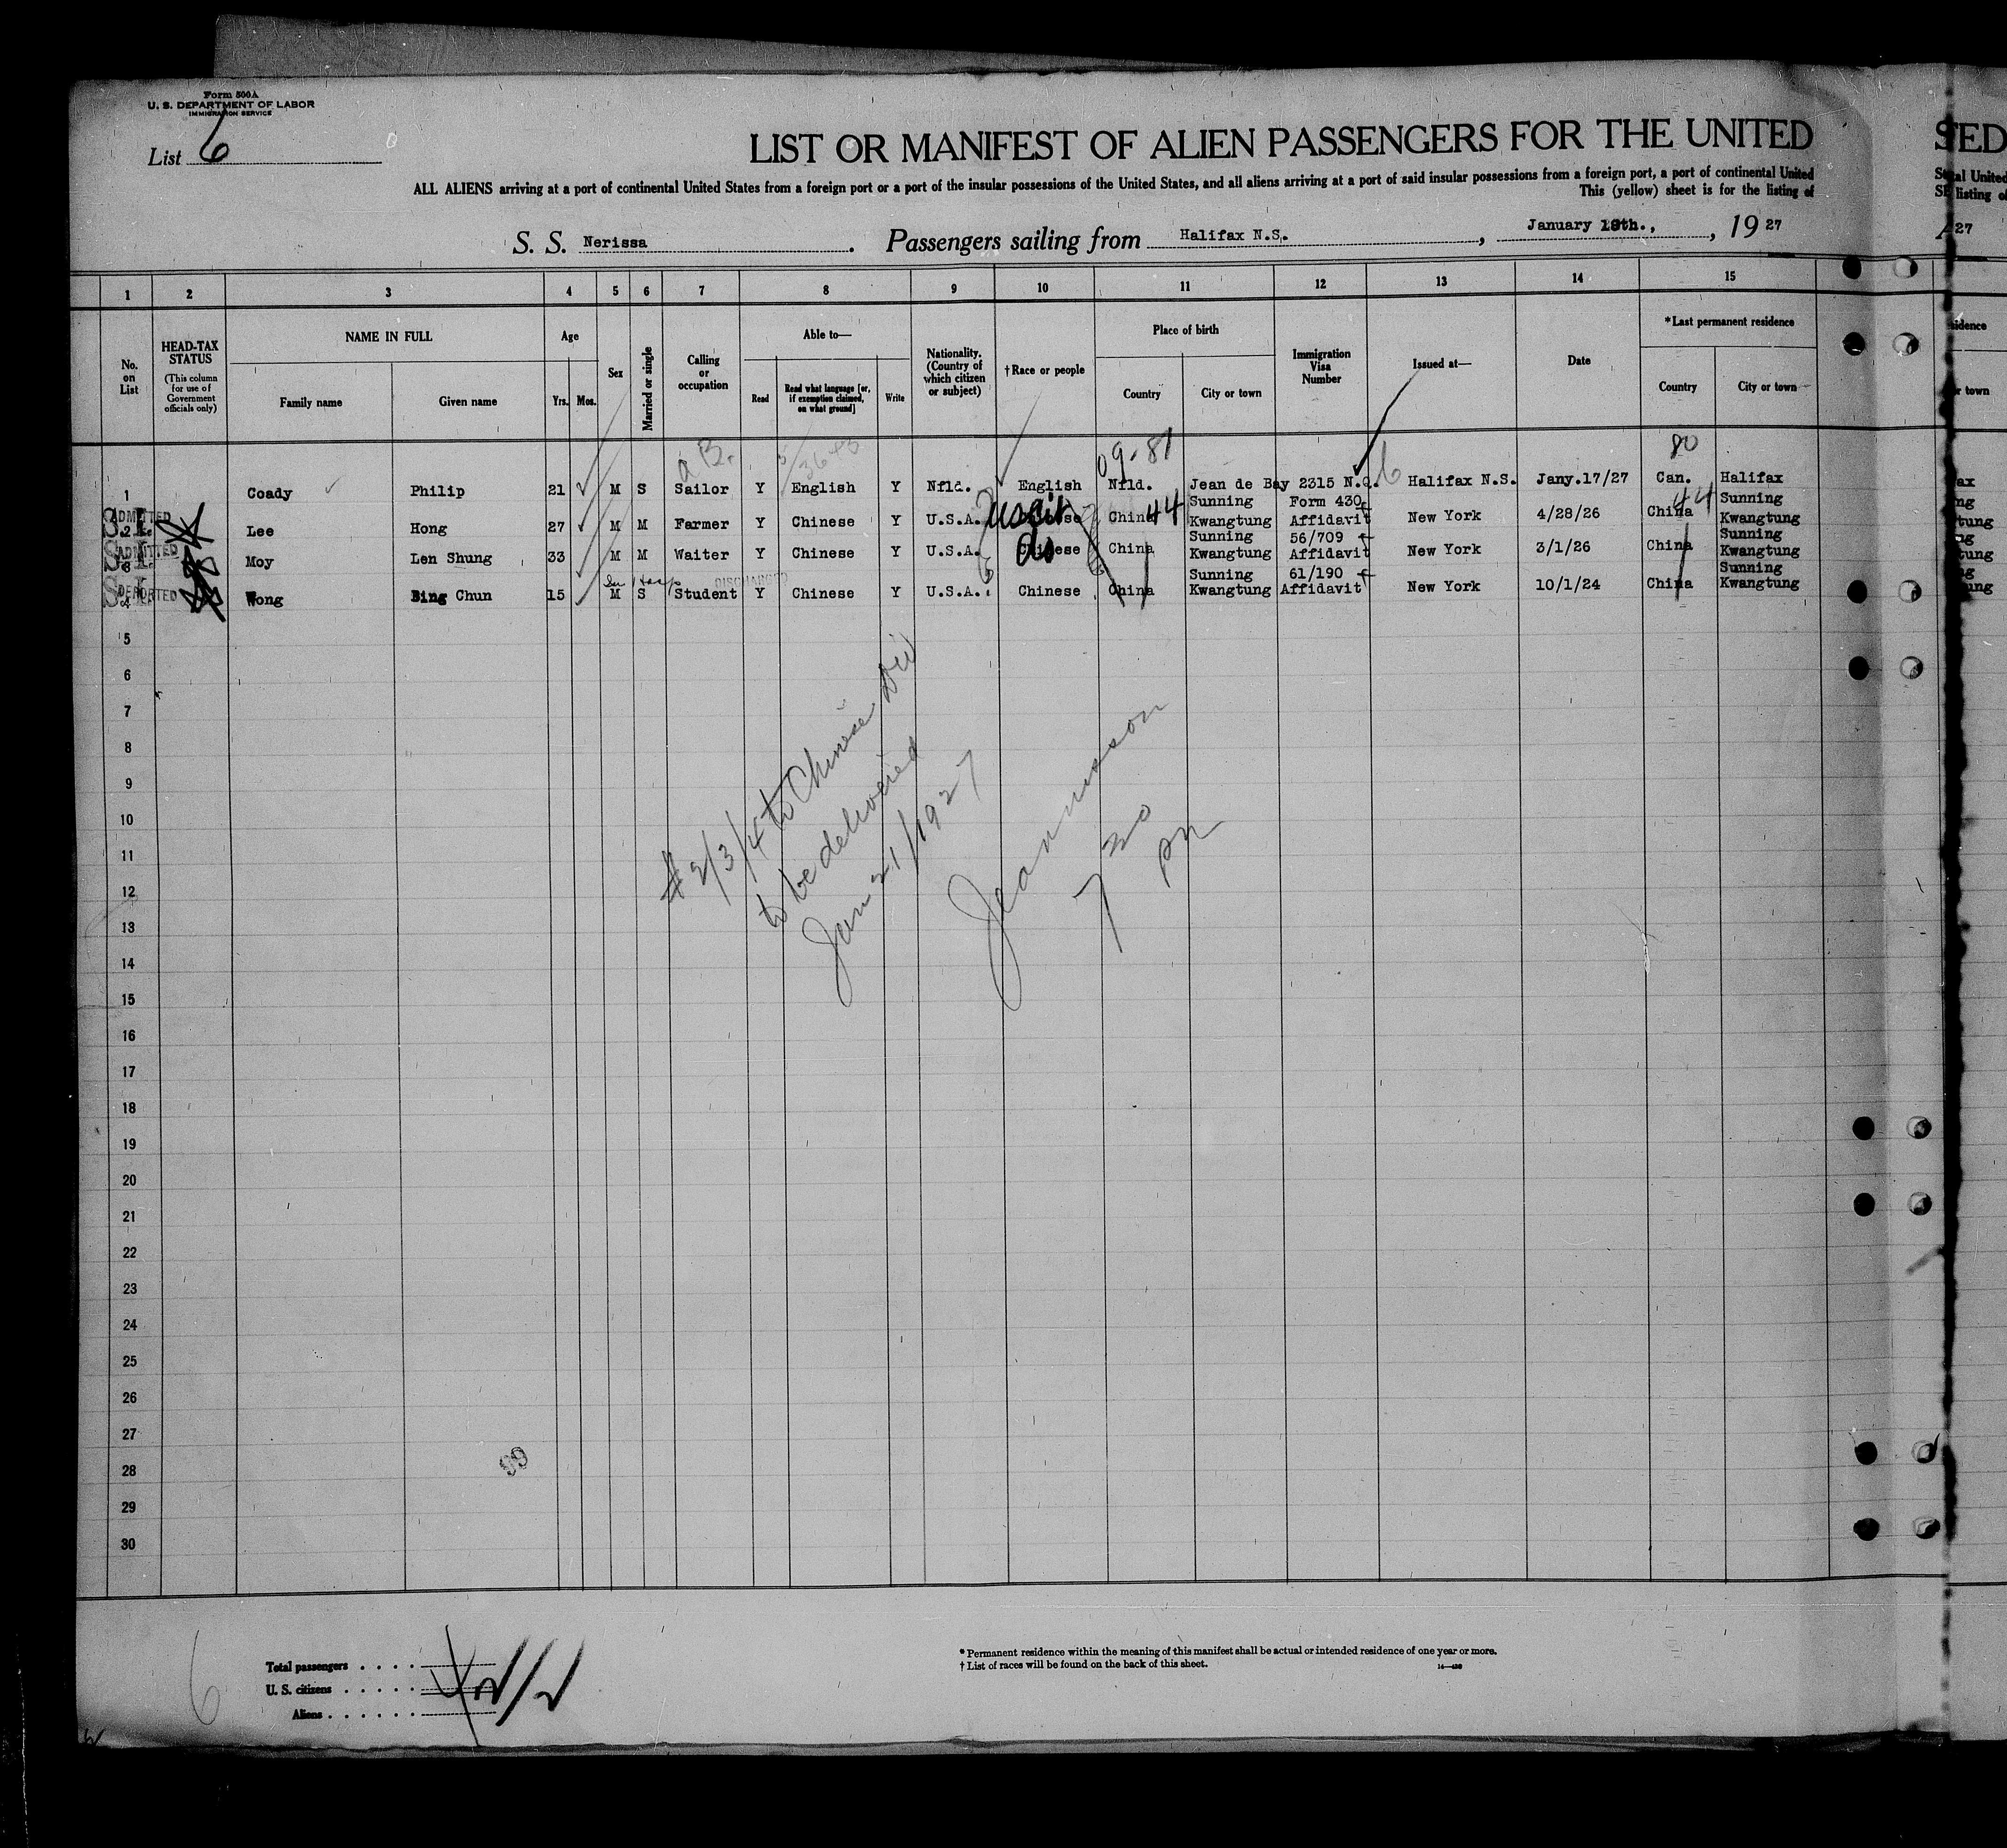 Form 500A
U. S. DEPARTMENT OF LABOR
IMMIGRATION SERVICE
List 6
LIST OR MANIFEST OF ALIEN PASSENGERS FOR THE UNITED
ALL ALIENS arriving at a port of continental United States from a foreign port or a port of the insular possessions of the United States, and all aliens arriving at a port of said insular possessions from a foreign port, a port of continental United
This (yellow) sheet is for the listing of
S. S. Nerissa. Passengers sailing from Halifax N.S., January th., , 19 27
1 2 3 4 5 6 7 8 9 10 11 12 13 14 15
No. on List
HEAD-TAX STATUS (This column for use of Government officials only)
NAME IN FULL
Family name Given name
Age
Yrs. Mos.
Sex
Married or single
Calling or occupation
Able to—
Read Read what language [or, if exemption claimed, on what ground] Write
Nationality. (Country of which citizen or subject)
†Race or people
Place of birth
Country City or town
Immigration Visa Number
Issued at—
Date
*Last permanent residence
Country City or town
09-87 80
1 Coady Philip 21 M S Sailor Y English Y Nfld. English Nfld. Jean de Bay 2315 N.Q. Halifax N.S. Jany.17/27 Can. Halifax
ADMITTED S.I. 2 Lee Hong 27 M M Farmer Y Chinese Y U.S.A. China 44 Sunning Kwangtung Form 430 Affidavit New York 4/28/26 China 44 Sunning Kwangtung
ADMITTED S.I. 3 Moy Len Shung 33 M M Waiter Y Chinese Y U.S.A. Chinese do China Sunning Kwangtung 56/709 Affidavit New York 3/1/26 China Sunning Kwangtung
DISCHARGED
DEPORTED S.I. 4 Wong Bing Chun 15 M S Student Y Chinese Y U.S.A. Chinese China Sunning Kwangtung 61/190 Affidavit New York 10/1/24 China Sunning Kwangtung
5
6
7
8
9
10
11
12
13
14
15
16
17
18
19
20
21
22
23
24
25
26
27
28
29
30
# 2/3/4 to Chinese Div
to be delivered
Jan 21/1927
7 30 pm
99
6
Total passengers
U. S. citizens
Aliens
* Permanent residence within the meaning of this manifest shall be actual or intended residence of one year or more.
† List of races will be found on the back of this sheet.